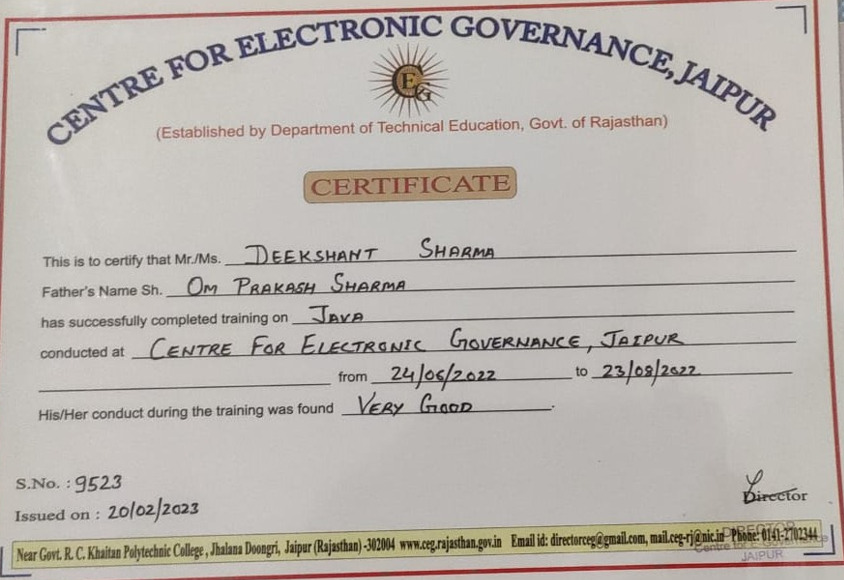 CENTRE FOR ELECTRONIC GOVERNANCE, JAIPUR
CEG
(Established by Department of Technical Education, Govt. of Rajasthan)
CERTIFICATE
This is to certify that Mr./Ms. DEEKSHANT SHARMA
Father's Name Sh. OM PRAKASH SHARMA
has successfully completed training on JAVA
conducted at CENTRE FOR ELECTRONIC GOVERNANCE, JAIPUR
from 24/06/2022 to 23/08/2022
His/Her conduct during the training was found VERY GOOD.
S.No. : 9523
Director
Issued on : 20/02/2023
Near Govt. R. C. Khaitan Polytechnic College, Jhalana Doongri, Jaipur (Rajasthan) -302004 www.ceg.rajasthan.gov.in Email id: directorceg@gmail.com, mail.ceg-rj@nic.in Phone: 0141-2702344
DIRECTOR
Centre for E-Governance
JAIPUR